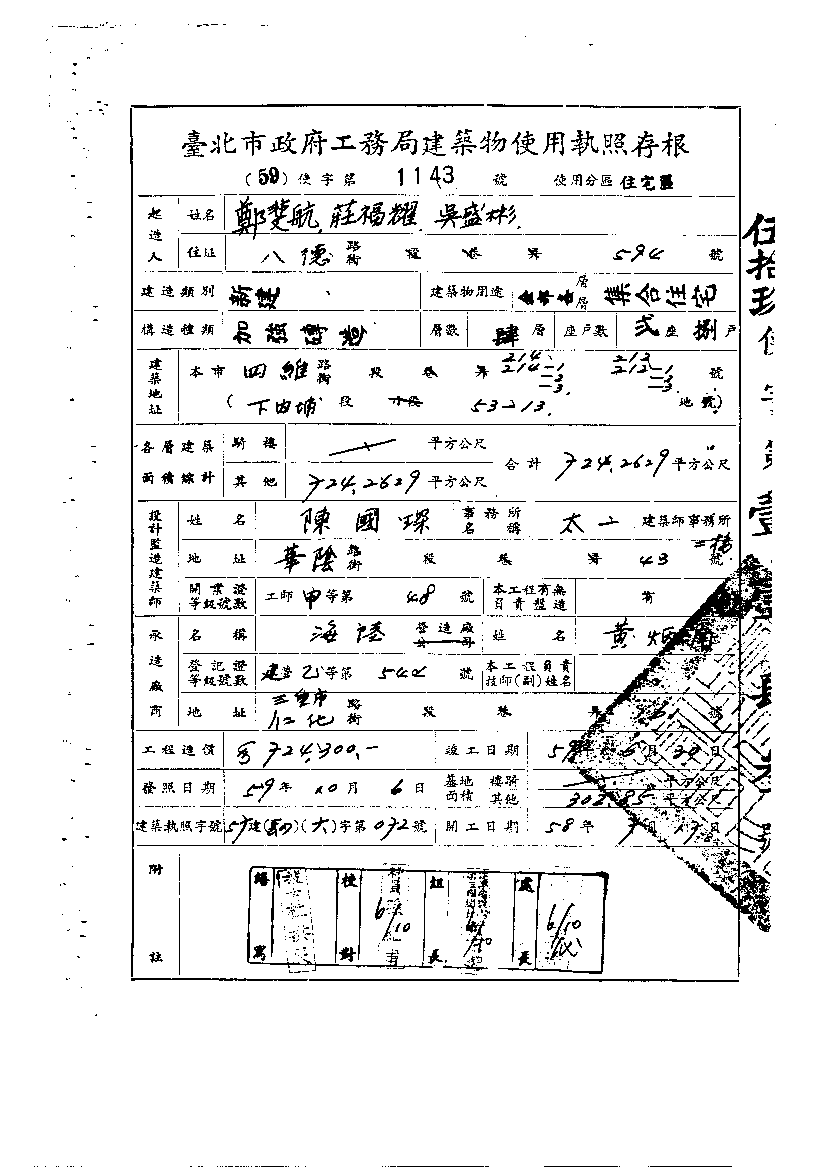 臺北市政府工務局建築物使用執照存根
(59)使字第 1143 號 使用分區 住宅區
起造人 姓名 鄭斐航 莊福耀 吳盛彬
住址 八德 路街 段 巷 弄 594 號
建造類別 新建 建築物用途 層層 集合住宅
構造種類 加強磚造 層數 肆層 座戶數 弍座 捌戶
建築地址 本市 四維 路街 段 巷 弄 214 214-1 -2 -3 212 212-1 -2 -3 號
(下內埔 段 小段 53-213 地號)
各層建築面積綜計 騎樓 平方公尺
其他 724.2629 平方公尺 合計 724.2629 平方公尺
設計監造建築師 姓名 陳國琛 事務所名稱 太工 建築師事務所
地址 華陰 路街 段 巷 弄 43 號 二樓
開業證等級號數 工師 甲等第 48 號 本工程有無負責監造 有
承造廠商 名稱 海陸 營造廠公司 姓名 黃
登記證等級號數 建營乙等第 544 號 本工程負責技師(副)姓名
地址 三重市 仁化 路街 段 巷 弄 號
工程造價 724,300.- 竣工日期 59年 6月 30日
發照日期 59年 10月 6日 基地面積 樓騎 平方公尺
其他 302.85 平方公尺
建築執照字號 57建( )(大)字第 072 號 開工日期 58年 7月 17日
附註
繕寫 校對 6/10 組長 6/10 處長 6/10
伍拾玖使字第壹